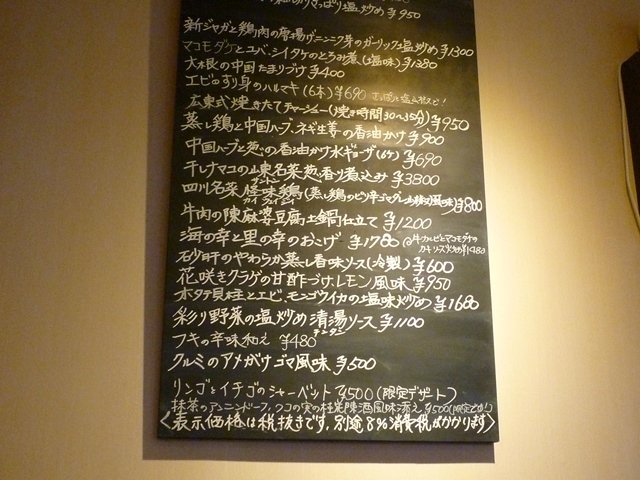 切りマッパリ塩炒め ¥950
新ジャガと鶏肉の唐揚げニンニク芽のガーリック塩炒め ¥1300
マコモダケとユバ、シイタケのとろみ煮(塩味) ¥1380
大根の中国たまりづけ ¥400
エビのすり身のハルマキ(6本) ¥690
広東式焼きたてチャーシュー(焼き時間30〜35分) ¥950
蒸し鶏と中国ハーブ、ネギ生姜の香油かけ ¥900
中国ハーブと葱の香油かけ水ギョーザ(6ケ) ¥690
干しナマコの山東名菜葱香り煮込み ¥3800
四川名菜 怪味鶏(蒸し鶏のピリ辛ゴマダレ風味) ¥800
牛肉の陳麻婆豆腐土鍋仕立て ¥1200
海の幸と里の幸のおこげ ¥1780 @牛カルビとマコモダケのカキソース炒め ¥1480
砂肝のやわらか蒸し香味ソース(冷製) ¥600
花咲きクラゲの甘酢づけ、レモン風味 ¥950
ホタテ貝柱とエビ、モンゴウイカの塩味炒め ¥1680
彩り野菜の塩炒め清湯ソース ¥1100
チンタン
フキの辛味和え ¥480
クルミのアメがけゴマ風味 ¥500
リンゴとイチゴのシャーベット ¥500(限定デザート)
抹茶のアンニンドーフ、クコの実の桂花陳酒風味添え ¥500
〈表示価格は税抜きです。別途8%消費税がかかります〉